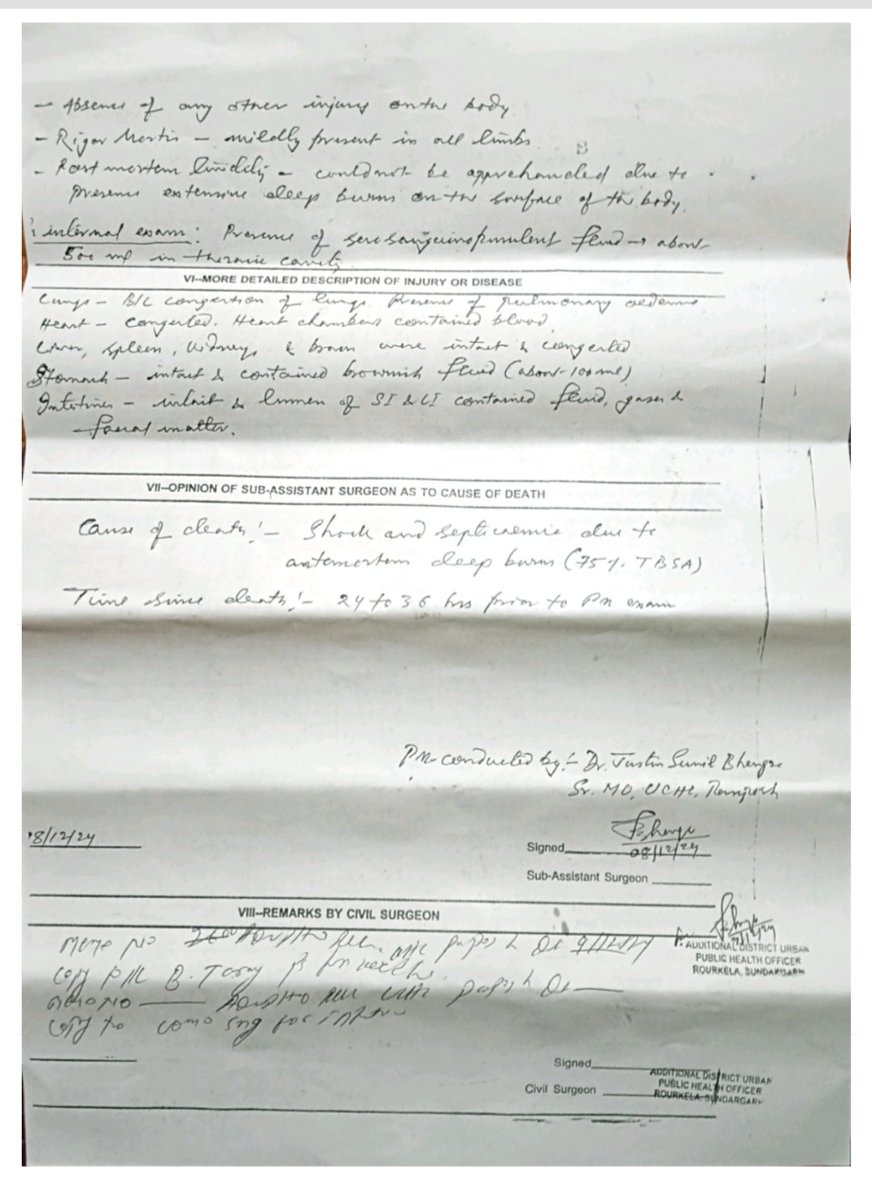 - Absence of any other injury on the body
- Rigor Mortis - mildly present in all limbs.
- Post mortem lividity - could not be apprehended due to
presence extensive deep burns on the surface of the body.
internal exam: Presence of serosanguinopurulent fluid → about
500 ml in thoracic cavity.
VI--MORE DETAILED DESCRIPTION OF INJURY OR DISEASE
Lungs - B/L congestion of lungs. Presence of pulmonary oedema
Heart - congested. Heart chambers contained blood.
Liver, spleen, kidneys, & brain were intact & congested
Stomach - intact & contained brownish fluid (about-100 ml)
Intestines - intact & lumen of SI & LI contained fluid, gases &
faecal matter.
VII--OPINION OF SUB-ASSISTANT SURGEON AS TO CAUSE OF DEATH
Cause of death:- Shock and septicaemia due to
antemortem deep burns (75% TBSA)
Time since death:- 24 to 36 hrs prior to PM exam
PM conducted by:- Dr. Justin Sunil Bhengra
Sr. MO, UCHC,
8/12/24
Signed
08/12/24
Sub-Assistant Surgeon
VIII--REMARKS BY CIVIL SURGEON
Memo No
ADDITIONAL DISTRICT URBAN
PUBLIC HEALTH OFFICER
ROURKELA, SUNDARGARH
Copy
Memo No
Copy to
Signed
Civil Surgeon
ADDITIONAL DISTRICT URBAN
PUBLIC HEALTH OFFICER
ROURKELA, SUNDARGARH